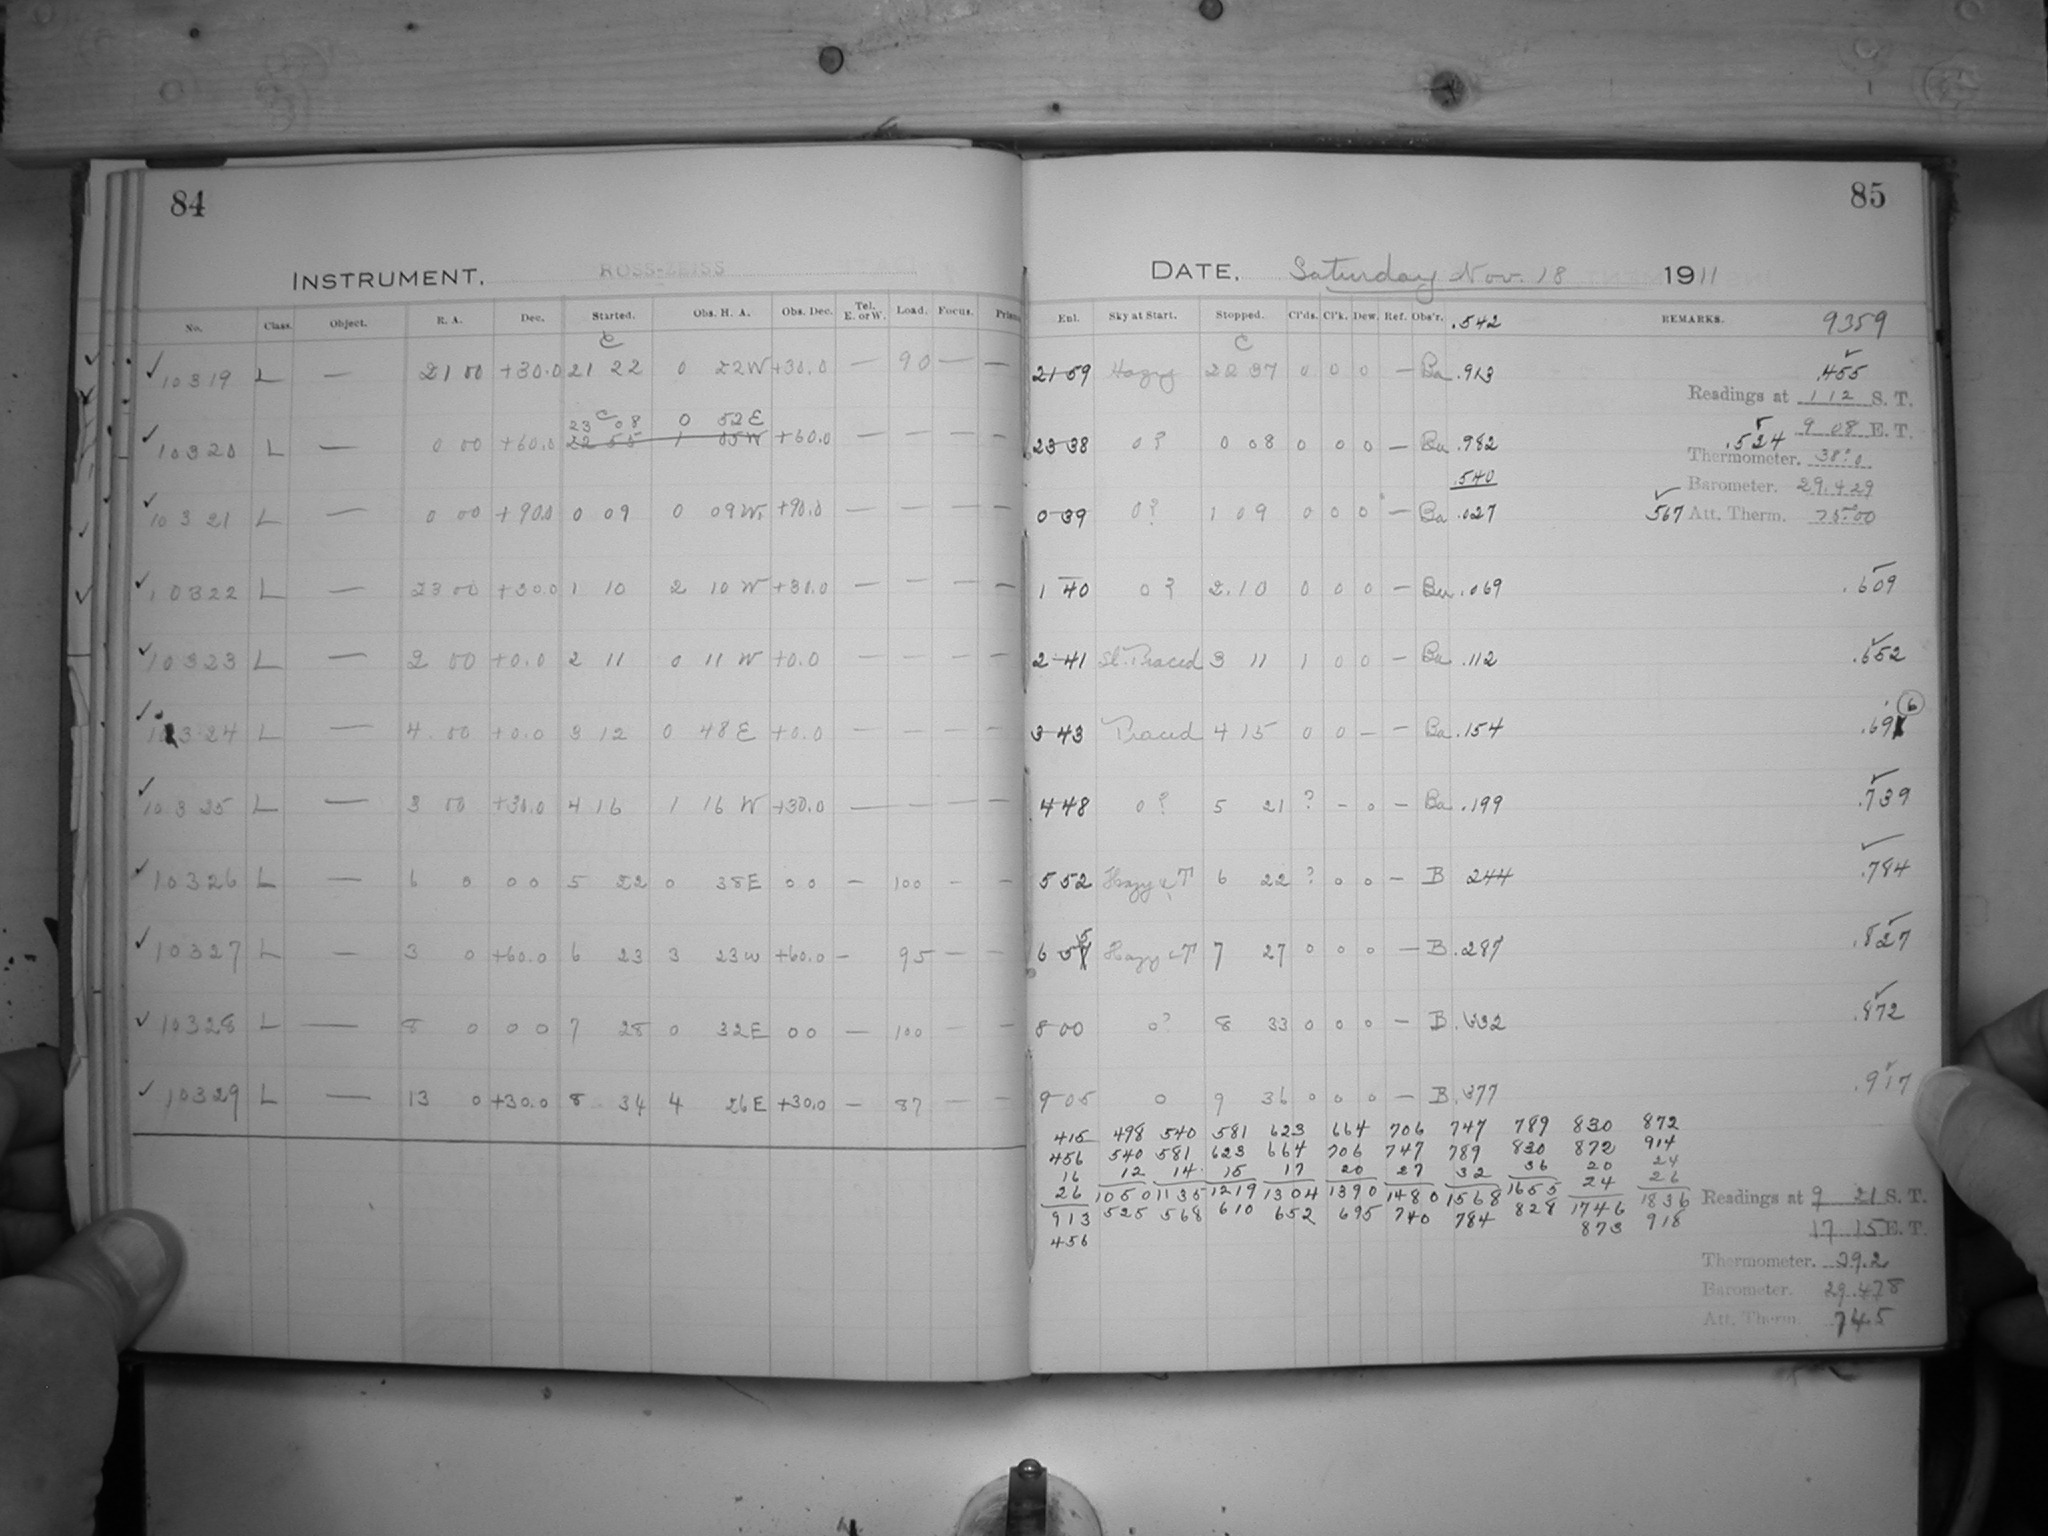 84
INSTRUMENT. ROSS-ZEISS
No. Class. Object. R. A. Dec. Started. Obs. H. A. Obs. Dec. Tel. E. or W. Load. Focus. Prism
✓ 10319 L — 21 00 +30.0 21 22 0 22W +30.0 — 90 — —
23 08 0 52E
✓ 10320 L — 0 00 +60.0 22 55 1 05W +60.0 — — — —
✓ 10321 L — 0 00 +90.0 0 09 0 09W. +90.0 — — — —
✓ 10322 L — 23 00 +30.0 1 10 2 10 W +30.0 — — — —
✓ 10323 L — 2 00 +0.0 2 11 0 11 W +0.0 — — — —
✓ 10324 L — 4.00 +0.0 3 12 0 48E +0.0 — — — —
✓ 10325 L — 3 00 +30.0 4 16 1 16 W +30.0 — — — —
✓ 10326 L — 6 0 0 0 5 22 0 38E 0 0 — 100 - -
✓ 10327 L — 3 0 +60.0 6 23 3 23W +60.0 - 95 — —
✓ 10328 L — 8 0 0 0 7 28 0 32E 0 0 — 100 - -
✓ 10329 L — 13 0 +30.0 8 34 4 26E +30.0 — 87 — —
85
DATE, Saturday Nov. 18 1911
Enl. Sky at Start. Stopped. Cl'ds. Cl'k. Dew. Ref. Obs'r. .542 REMARKS. 9359
C
21 59 Hazy 22 37 0 0 0 — Ba .913 .455
Readings at 1 12 S. T.
.524 9 08 E. T.
23 38 0? 0 08 0 0 0 — Ba .982
Thermometer. 38.0
.540
Barometer. 29.429
0 39 0? 1 09 0 0 0 — Ba .027 567 Att. Therm. 75.00
1 40 0? 2.10 0 0 0 — Ba .069 .609
2 41 Sl. Traced 3 11 1 0 0 — Ba .112 .652
3 43 Traced 4 15 0 0 — — Ba .154 .69 6
4 48 0? 5 21 ? - 0 — Ba .199 .739
5 52 Hazy 6 22 ? 0 0 — B 244 .784
6 55 Hazy 7 27 0 0 0 — B .287 .827
8 00 0? 8 33 0 0 0 — B .332 .872
9 05 0 9 36 0 0 0 — B .377 .917
415 498 540 581 623 664 706 747 789 830 872
456 540 581 623 664 706 747 789 830 872 914
16 12 14 15 17 20 27 32 36 20 24
26 1050 1135 1219 1304 1390 1480 1568 1655 24 26
913 525 568 610 652 695 740 784 828 1746 1836
456 873 918
Readings at 9 21 S. T.
17 15 E. T.
Thermometer. 39.2
Barometer. 29.478
Att. Therm. 745